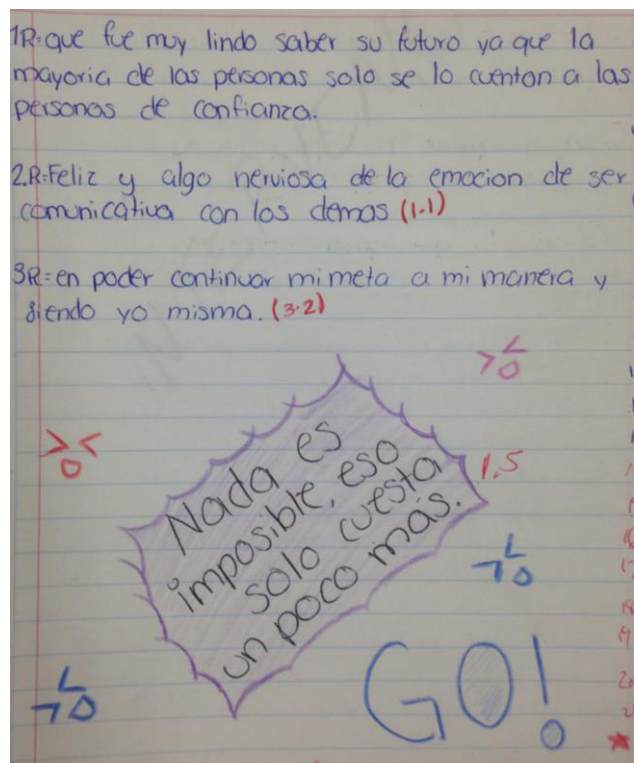 1R=que fue muy lindo saber su futuro ya que la
mayoria de las personas solo se lo cuentan a las
personas de confianza.
2.R=Feliz y algo nerviosa de la emocion de ser
comunicativa con los demas (1.1)
3R=en poder continuar mi meta a mi manera y
siendo yo misma. (3.2)
Nada es
imposible, eso
solo cuesta
un poco más.
1.5
GO!
17
18
19
20